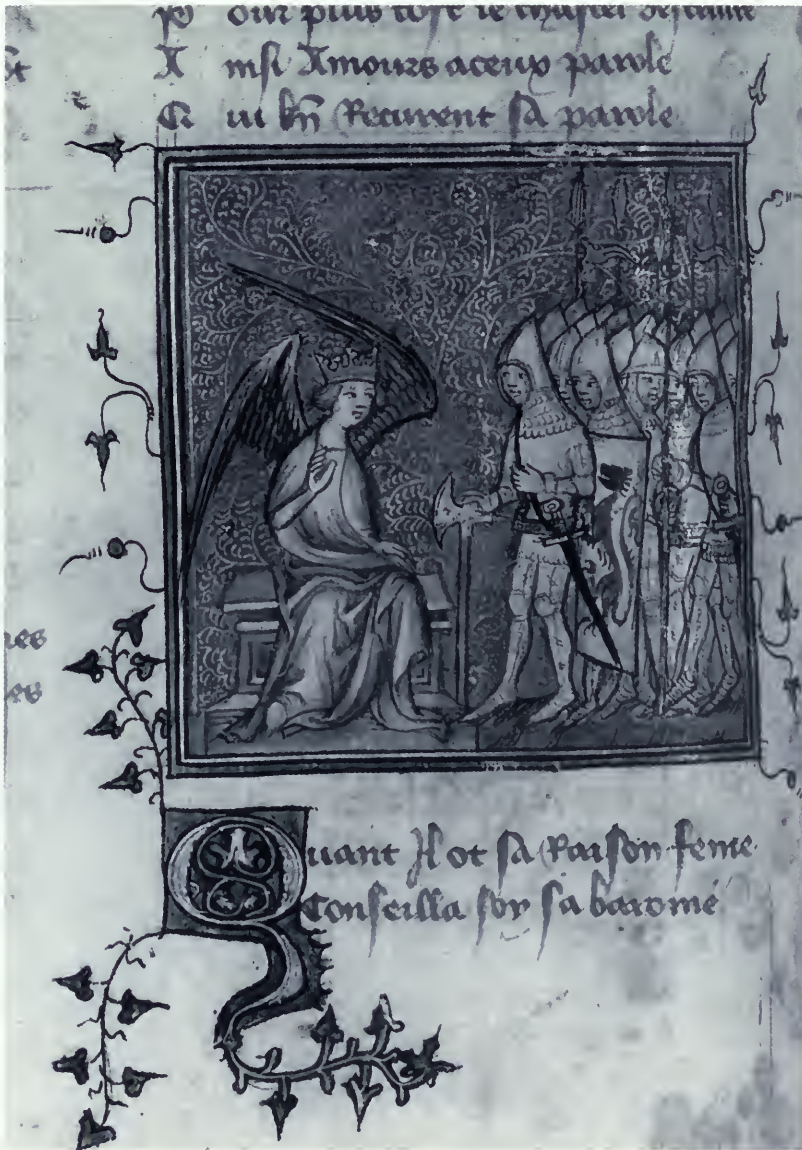 P our plus tost le chastel
A insi Amours a ceux parole
Q ui bn̄ Recurent sa parole
Quant Il ot sa Raison fenie
Conseilla soy sa baronie